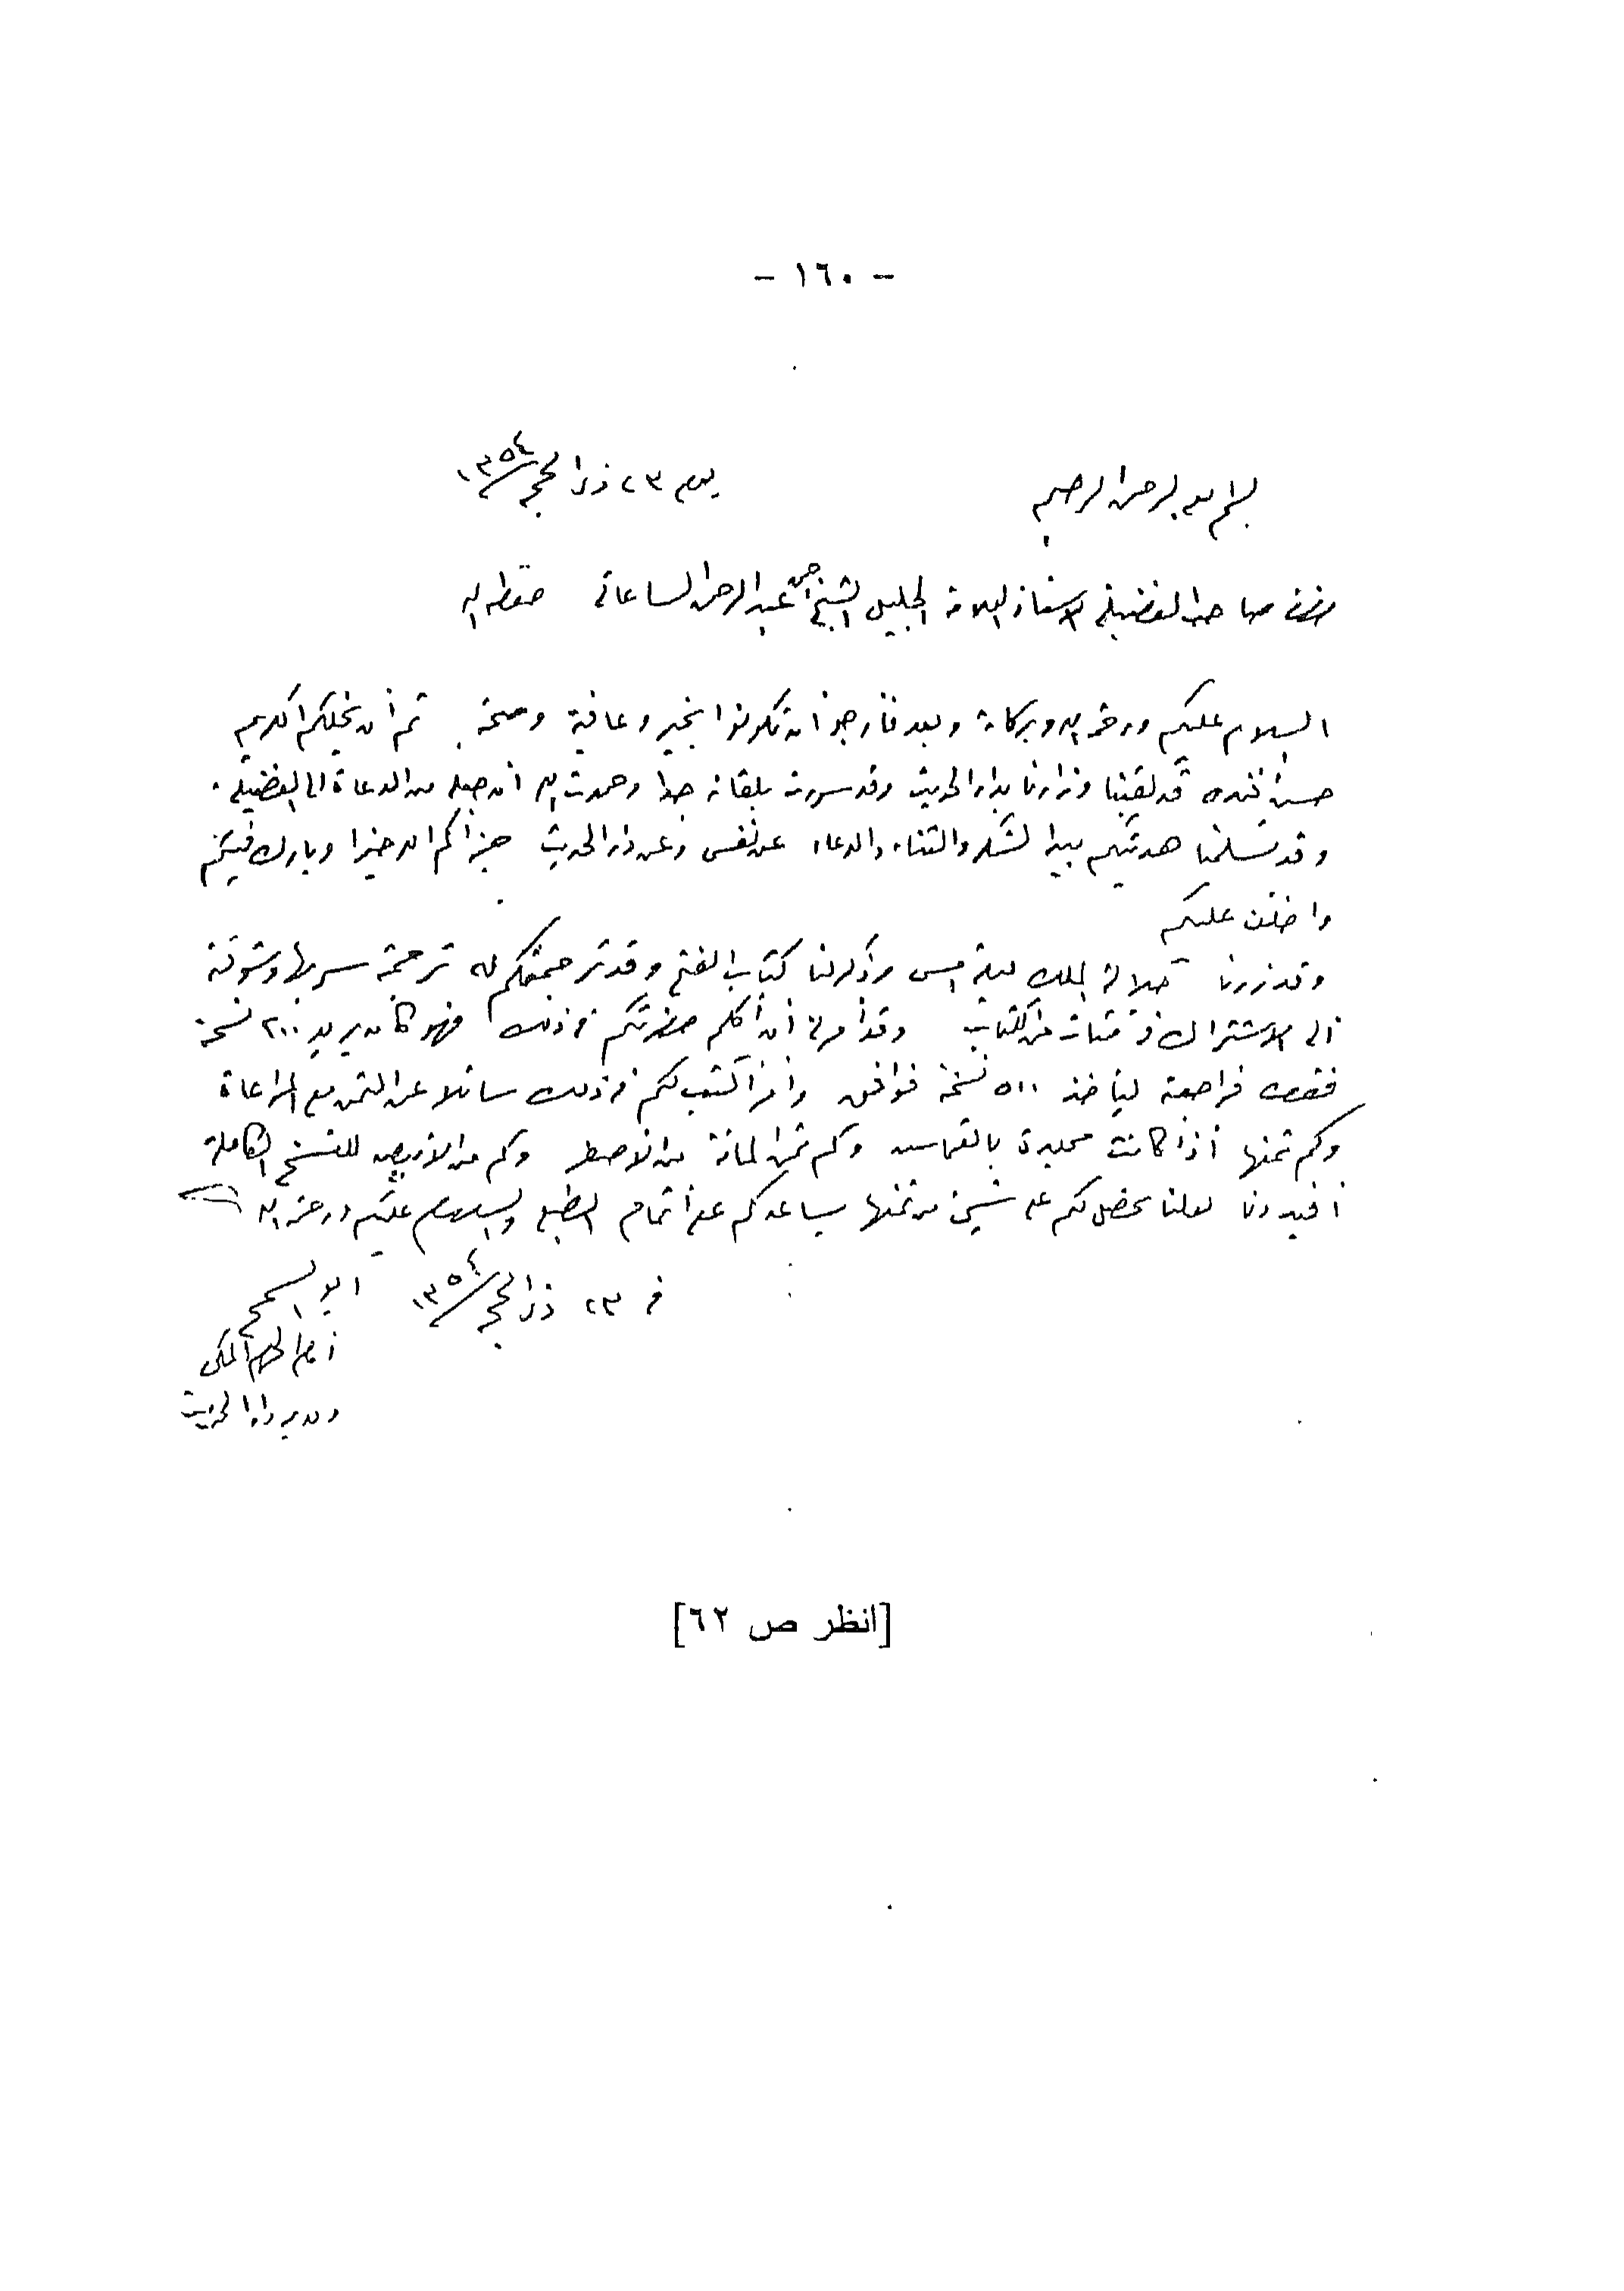 - ١٦٠ -
بسم الله الرحمن الرحيم
يوم ٢٣ ذي الحجة ١٣٥٤
حضرة صاحب الفضيلة الاستاذ العلامة الجليل الشيخ عبد الرحمن الساعاتي حفظه الله
السلام عليكم ورحمة الله وبركاته وبعد فأرجو أن تكونوا بخير وعافية وصحة ثم أن نجلكم الكريم
حسن قد لقينا وزارنا بدار الحديث وقد سررت بلقائه جدا وحمدت الله أن جعله من الدعاة إلى الفضيلة.
وقد تسلمنا هديتكم بيد الشكر والثناء والدعاء عن نفسي وعن دار الحديث جزاكم الله خيرا وبارك فيكم
واخلف عليكم
وقد زرنا جلالة الملك ليلة امس وذكر لنا كتاب الفتح وقد ترجمت لكم له ترجمة سر بها وشوقته
الى الاشتراك في مئات من الكتاب وقد أمرني أن أكلم حضرتكم في ذلك فهو كان يريد ٢٠٠ نسخة
فقط فراجعته ليأخذ ٥٠٠ نسخة فوافق وأمر أكتب لكم في ذلك سائلا عن الثمن مع المراعاة
وكم ثمنها أذا كانت مجلدة بالقماش وكم ثمن المائة من الأصل وكم من للنسخ الكاملة
أفيدونا لعلنا نحصل لكم على شيئ من ثمنها يساعدكم على أتمام الطبع والسلام عليكم ورحمة الله
في ٢٣ ذي الحجة ١٣٥٤
ابو السمح
أمام الحرم المكي
ومدير دار الحديث
[انظر ص ٦٢]